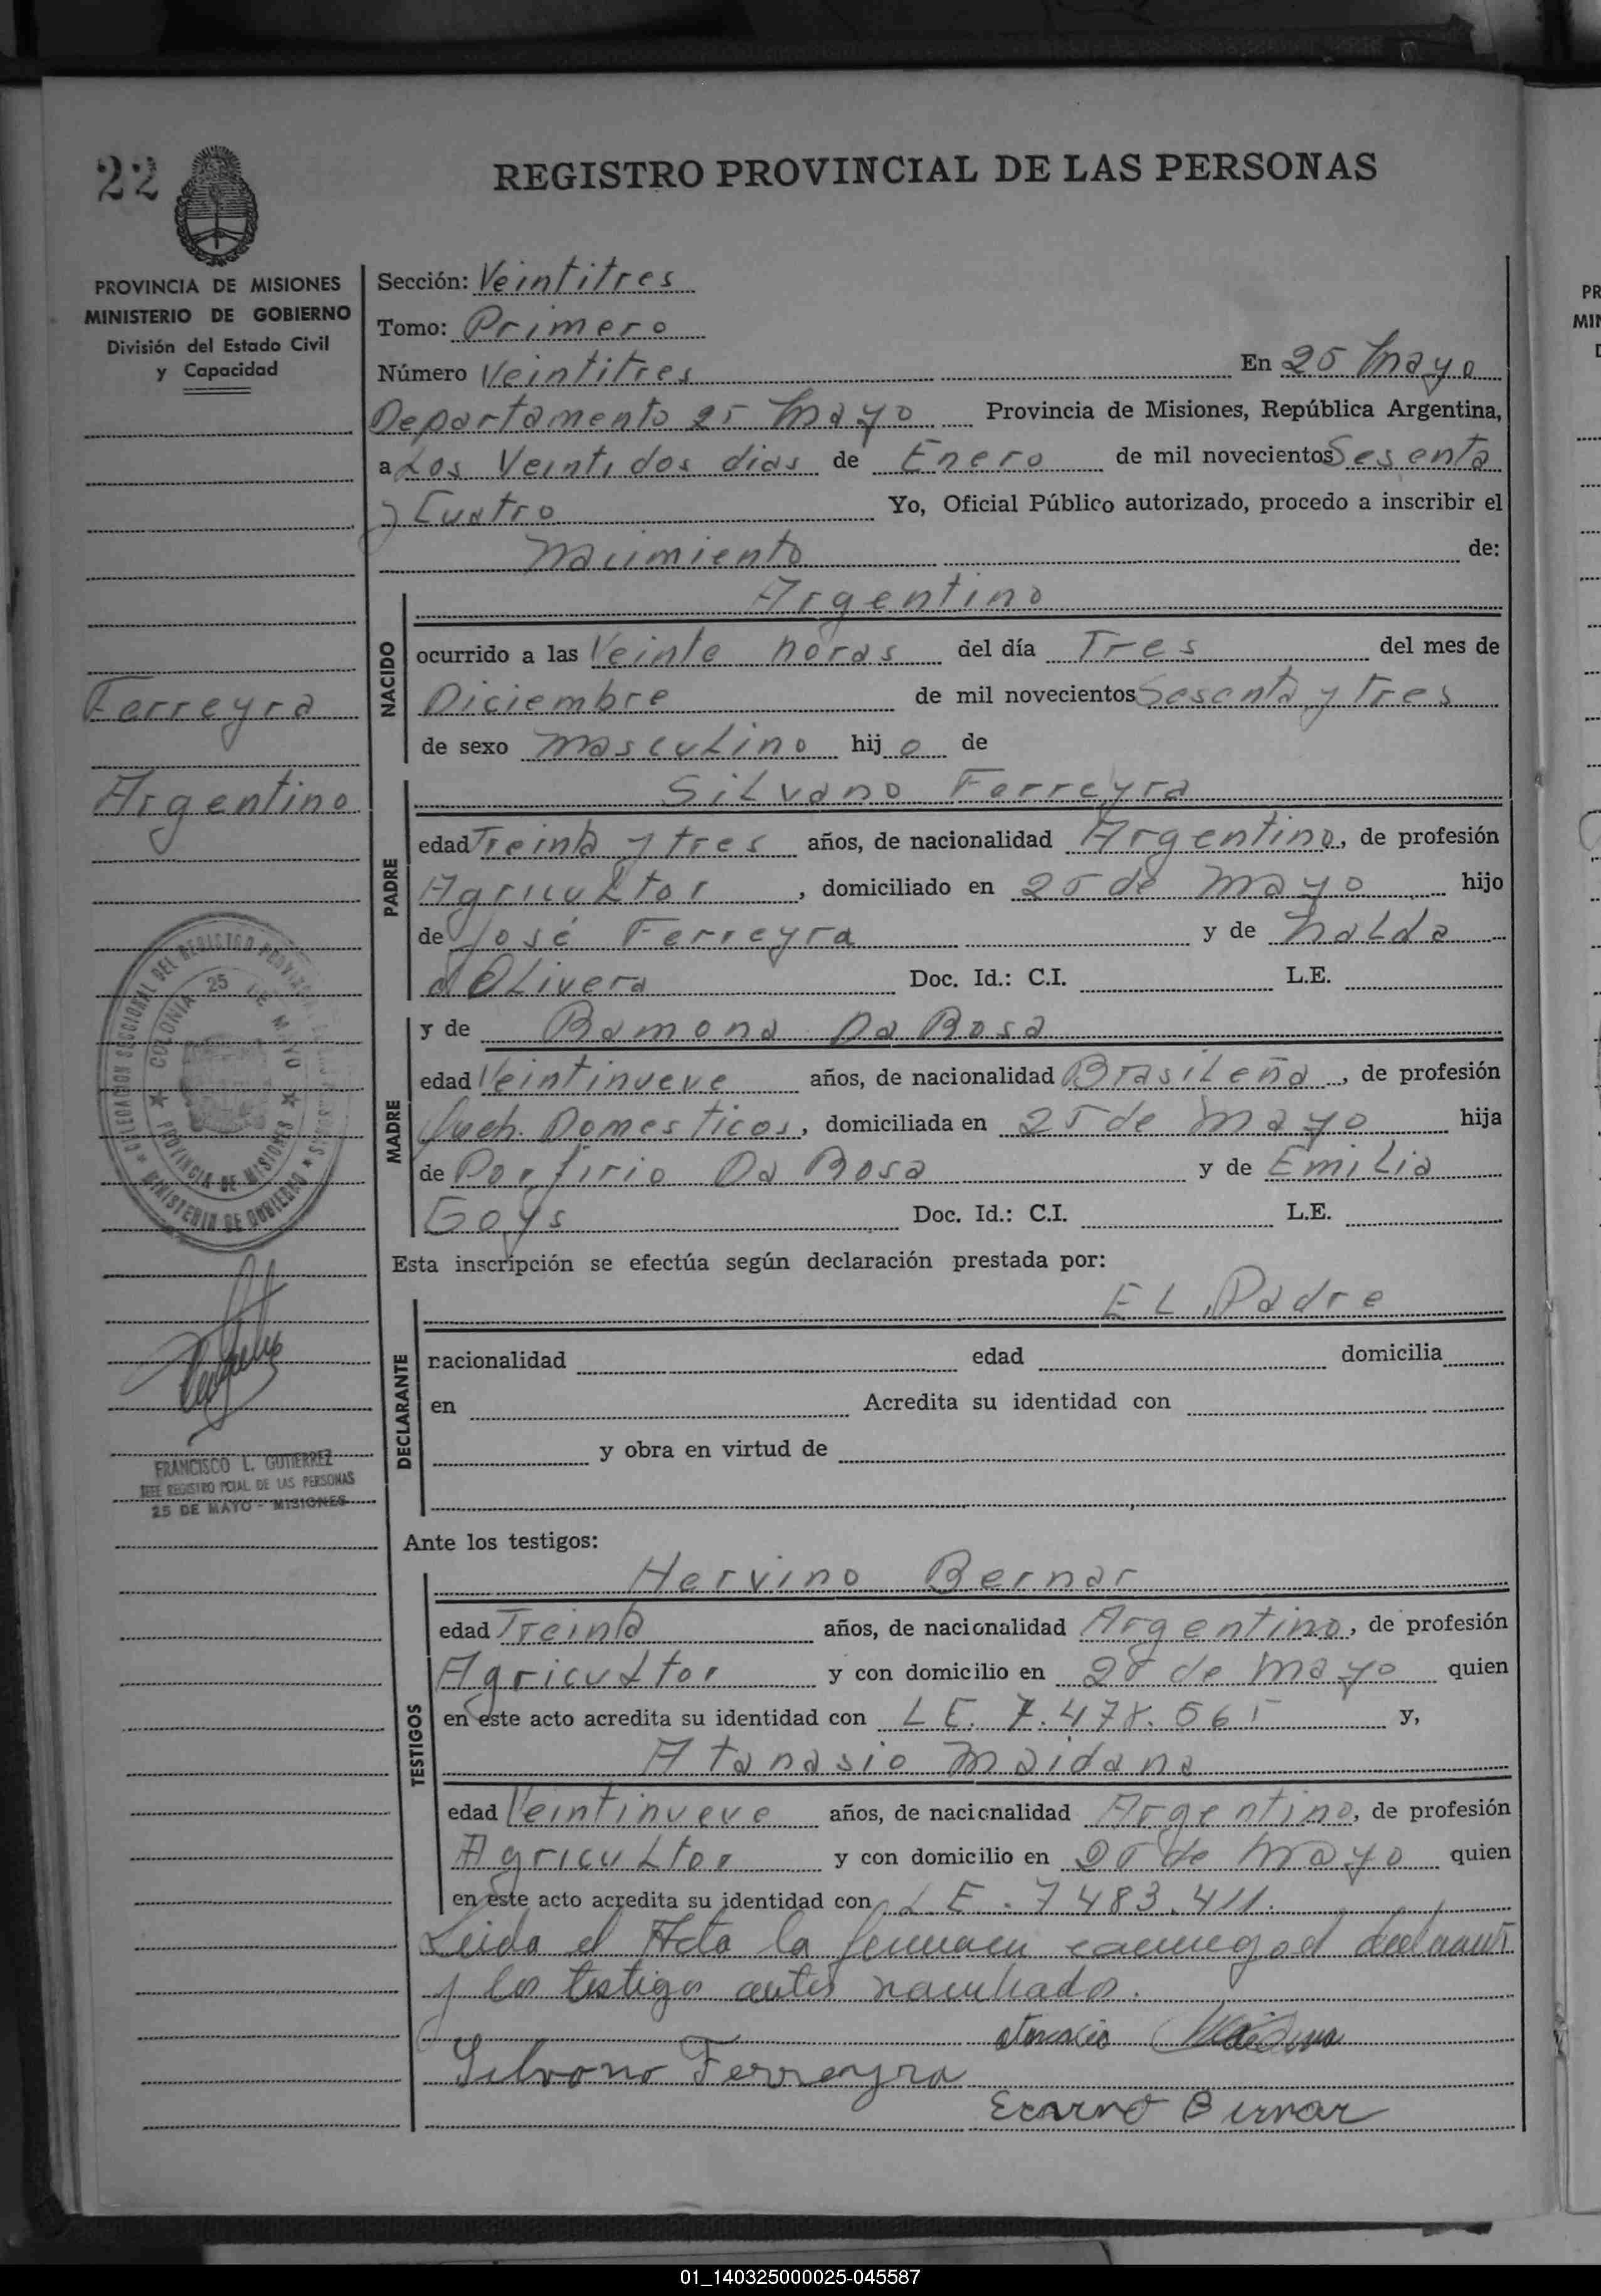 22
REGISTRO PROVINCIAL DE LAS PERSONAS
PROVINCIA DE MISIONES
MINISTERIO DE GOBIERNO
División del Estado Civil
y Capacidad
Ferreyra
Argentino
COLONIA 25 DE MAYO
PROVINCIA DE MISIONES
MINISTERIO DE GOBIERNO
FRANCISCO L. GUTIERREZ
JEFE REGISTRO PCIAL DE LAS PERSONAS
25 DE MAYO - MISIONES
Sección: Veintitres
Tomo: Primero
Número Veintitres En 25 Mayo
Departamento 25 Mayo Provincia de Misiones, República Argentina,
a Los Veintidos dias de Enero de mil novecientos Sesenta
y Cuatro Yo, Oficial Público autorizado, procedo a inscribir el
Nacimiento de:
NACIDO
Argentino
ocurrido a las Veinte horas del día Tres del mes de
Diciembre de mil novecientos Sesenta y Tres
de sexo Masculino hij o de
PADRE
Silvano Ferreyra
edad Treinta y tres años, de nacionalidad Argentino, de profesión
Agricultor, domiciliado en 25 de Mayo hijo
de José Ferreyra y de Nalda
d Olivera Doc. Id.: C.I. L.E.
MADRE
y de Ramona Da Rosa
edad Veintinueve años, de nacionalidad Brasileña, de profesión
Queh. Domesticos, domiciliada en 25 de Mayo hija
de Porfirio Da Rosa y de Emilia
Goys Doc. Id.: C.I. L.E.
Esta inscripción se efectúa según declaración prestada por:
DECLARANTE
El Padre
nacionalidad edad domicilia
en Acredita su identidad con
y obra en virtud de
Ante los testigos:
TESTIGOS
Hervino Bernar
edad Treinta años, de nacionalidad Argentino, de profesión
Agricultor y con domicilio en 25 de Mayo quien
en este acto acredita su identidad con L E. 7.478.565 y,
Atanasio Maidana
edad Veintinueve años, de nacionalidad Argentino, de profesión
Agricultor y con domicilio en 25 de Mayo quien
en este acto acredita su identidad con L.E. 7483.411.
Leida el Acta la
y los testigos antes
Atanacio Maidana
Silvano Ferreyra
Bernar
01_140325000025-045587